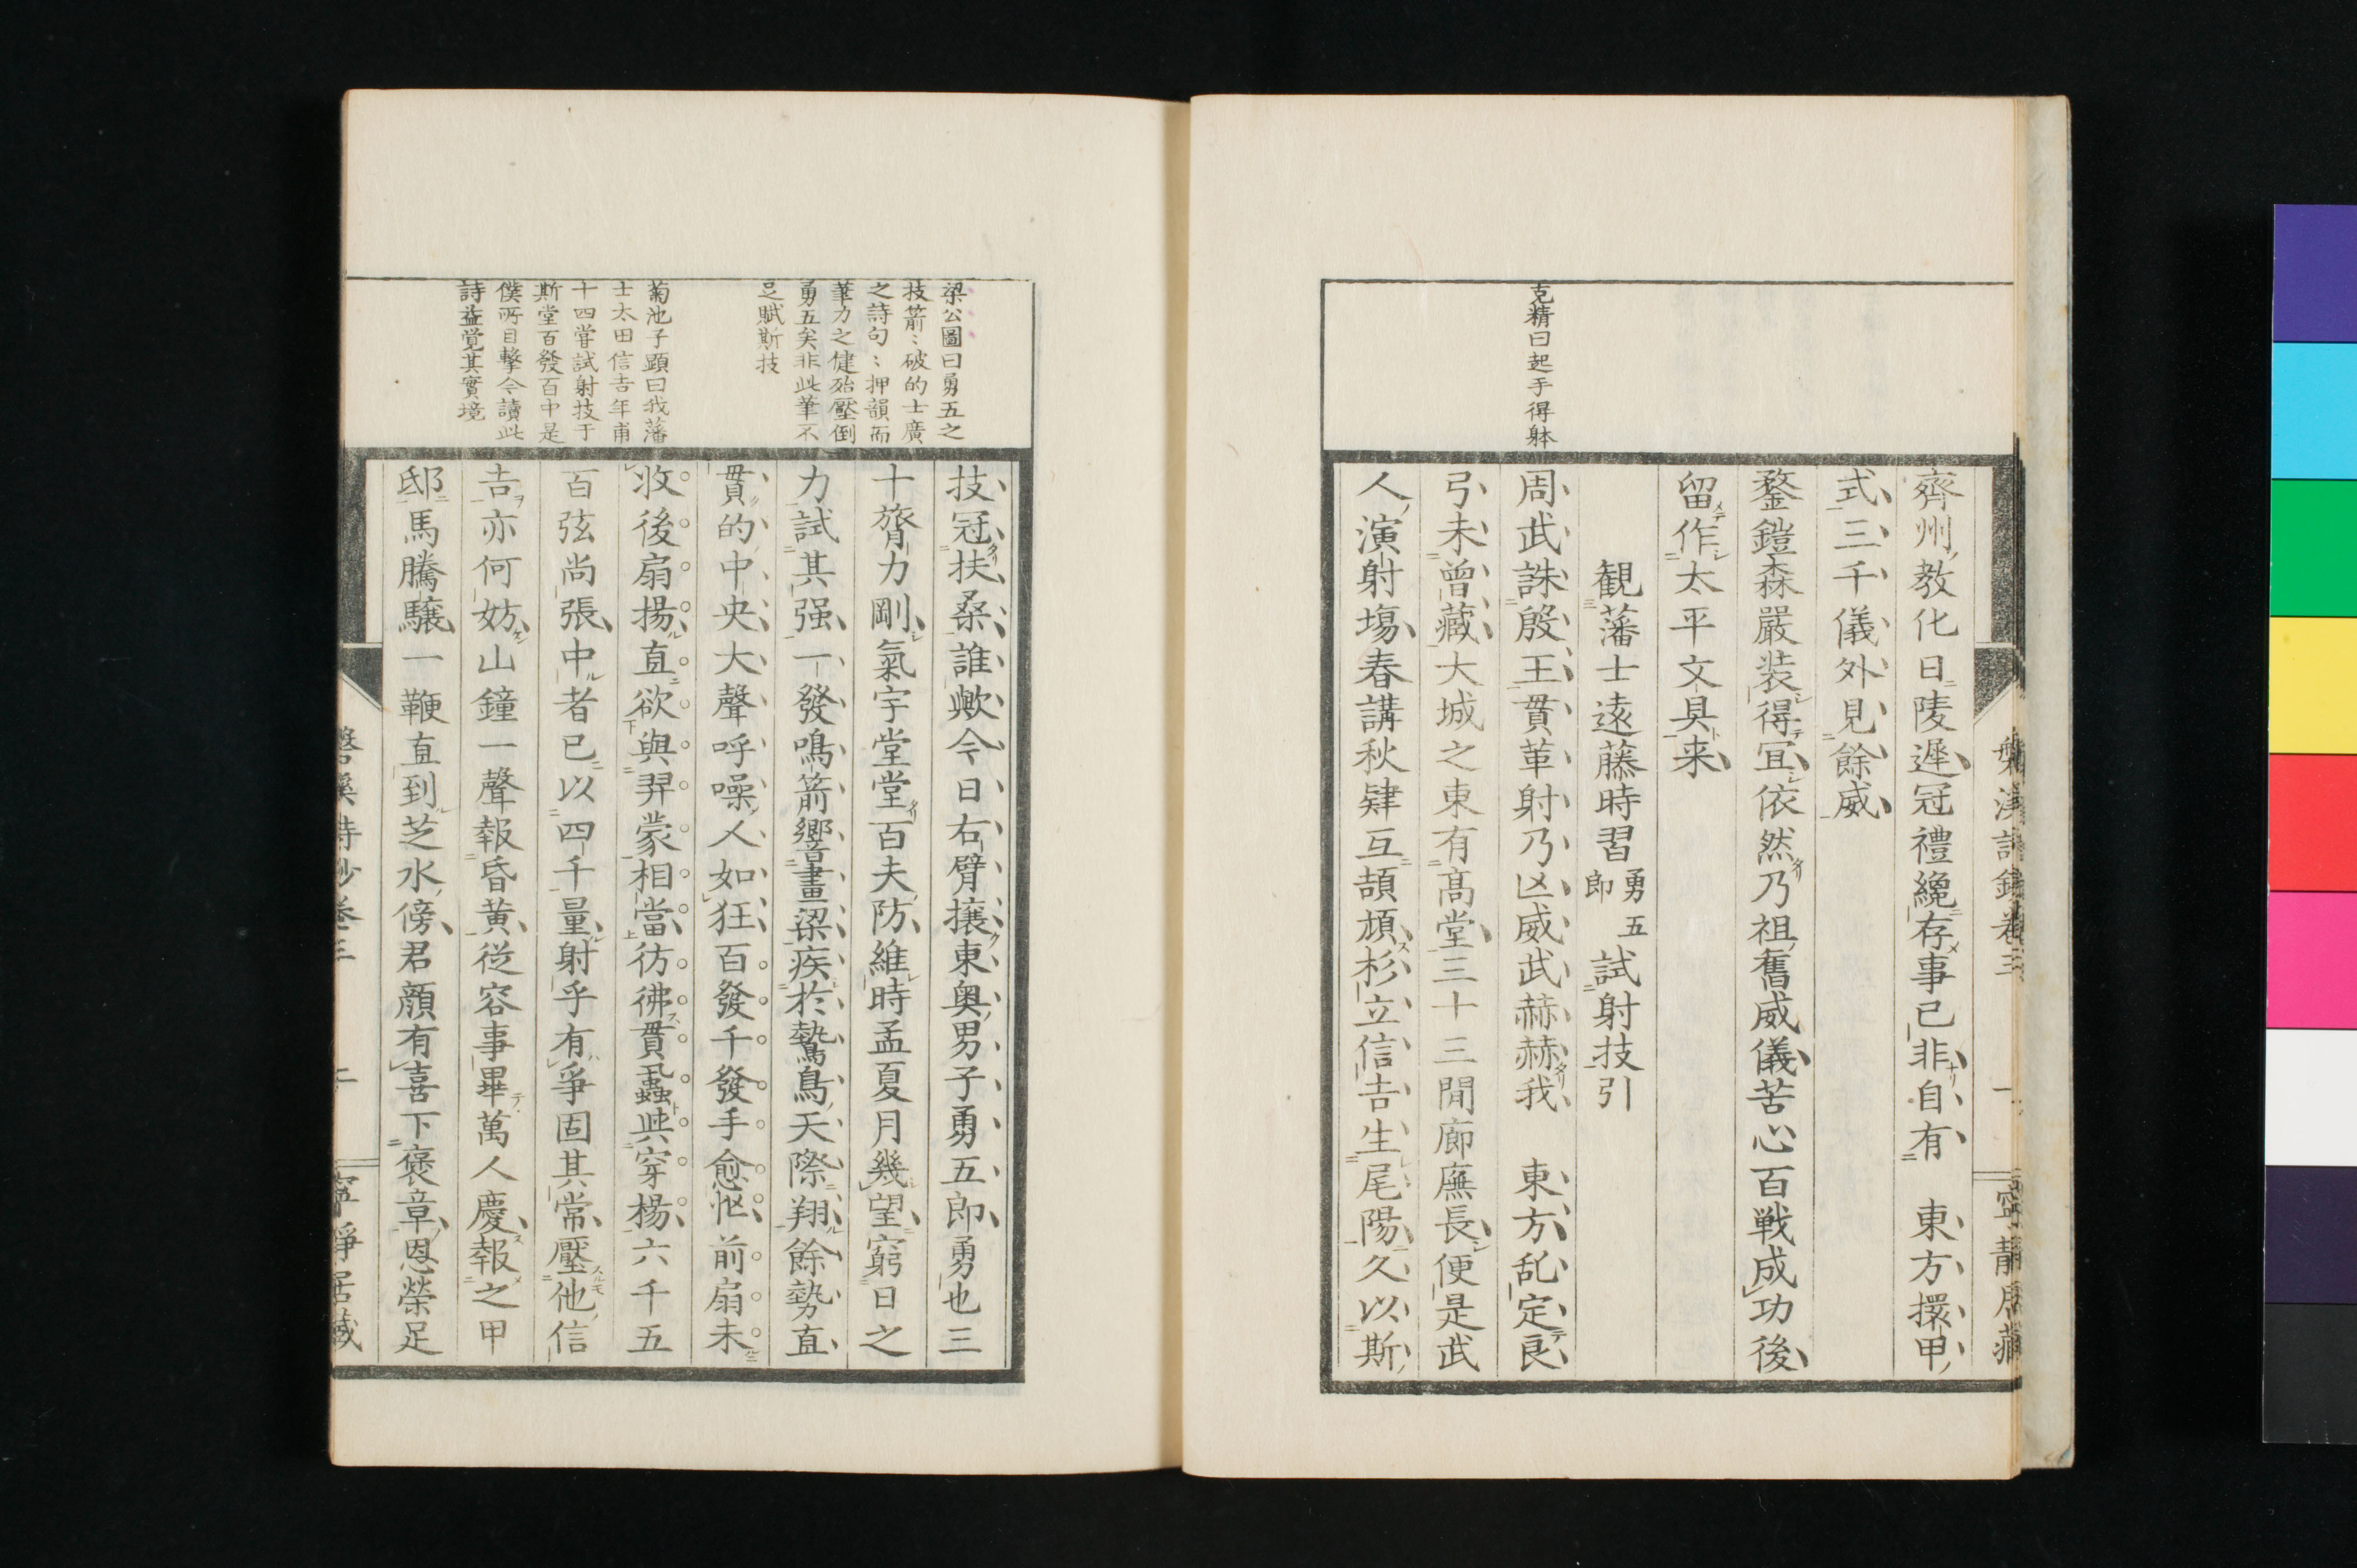 克精曰起手得躰
齊州教化日陵遲冠禮纔存事已非自有　東方擐甲
式三千儀外見餘威
鍪鎧森嚴装得冝依然乃祖舊威儀苦心百戦成功後
留作太平文具来
観藩士遠藤時習勇五郎五試射技引
周武誅殷王貫革射乃凶威武赫赫我　東方乱定良
弓未曽藏大城之東有髙堂三十三間廊廡長便是武
人演射塲春講秋肄互頡頏杉立信吉生尾陽久以斯
梁公圖曰勇五之
技箭〻破的士廣
之詩句〻押韻而
筆力之健殆壓倒
勇五矣非此筆不
足賦斯技
菊池子顕曰我藩
士太田信吉年甫
十四嘗試射技于
斯堂百發百中是
僕所目撃今讀此
詩益覚其實境
技冠扶桑誰歟今日右臂攘東奥男子勇五郎勇也三
十膂力剛氣宇堂堂百夫防維時孟夏月幾望窮日之
力試其强一發鳴箭響畫梁疾於鷙鳥天際翔餘勢直
貫的中央大聲呼噪人如狂百發千發手愈忙前扇未
收後扇揚直欲與羿蒙相當彷彿貫蝨與穿楊六千五
百弦尚張中者已以四千量射乎有爭固其常壓他信
吉亦何妨山鐘一聲報昏黄従容事畢萬人慶報之甲
邸馬騰驤一鞭直到芝水傍君顔有喜下褒章恩榮足